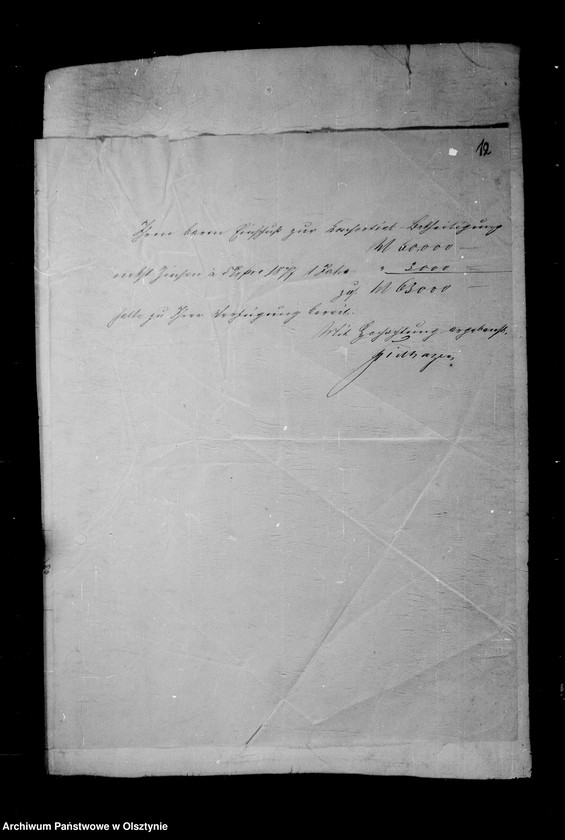 12
Ihren baren Einschuß zur Consortial-Betheiligung
M 60,000 —
nebst Zinsen à 5% pro 1877 1 Jahr " 3000 —
zus. M 63000 —
halte zu Ihrer Verfügung bereit.
Mit Hochachtung ergebenst.
Archiwum Państwowe w Olsztynie